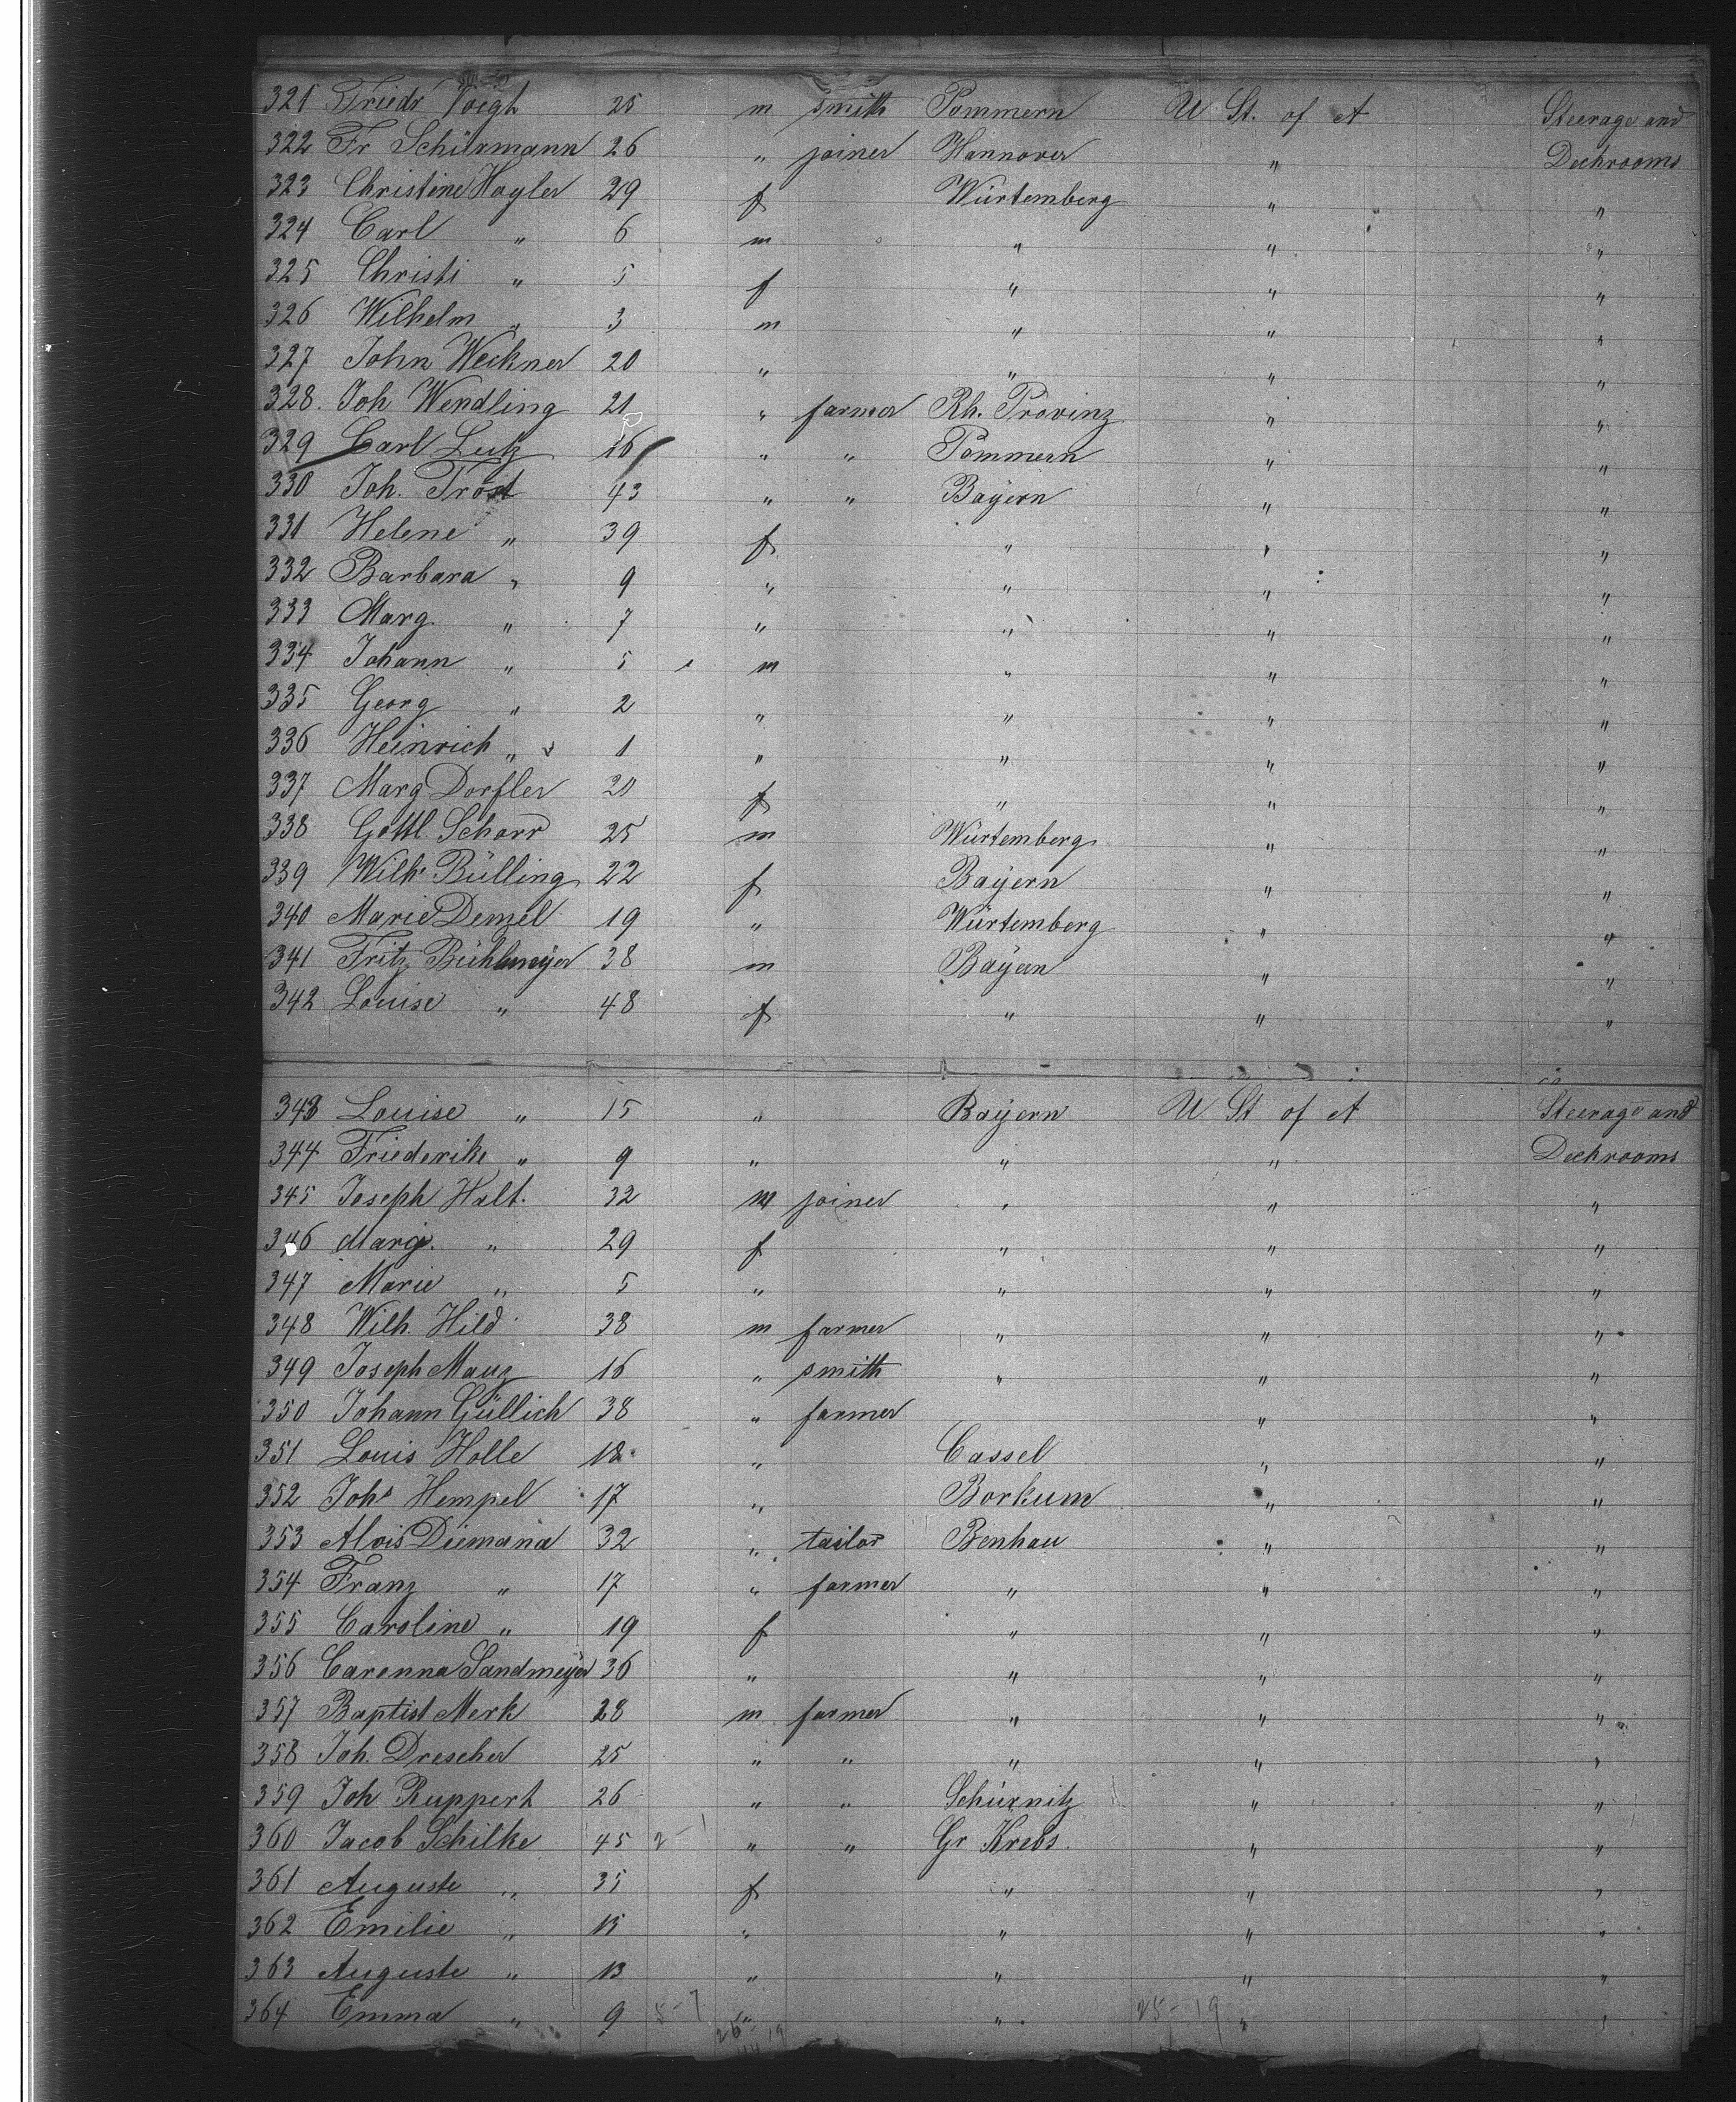 321 Friedr Voigt 25 m smith Pommern U St. of A Steerage and
322 Fr Schürmann 26 " joiner Hannover " Deckrooms
323 Christine Hayler 29 f Würtemberg " "
324 Carl " 6 m " " "
325 Christi " 5 f " " "
326 Wilhelm " 3 m " " "
327 John Weckner 20 " " " "
328. Joh Wendling 21 " farmer Rh. Provinz " "
329 Carl Lutz 16 " " Pommern " "
330 Joh. Trost 43 " " Bayern " "
331 Helene " 39 f " " "
332 Barbara " 9 " " " "
333 Marg. " 7 " " " "
334 Johann " 5 m " " "
335 Georg " 2 " " " "
336 Heinrich " 1 " " " "
337 Marg Dorfler 20 f " " "
338 Gottl. Schorr 25 m Würtemberg " "
339 Wilh Bülling 22 f Bayern " "
340 Marie Demel 19 " Würtemberg " "
341 Fritz Bühlmeyer 38 m Bayern " "
342 Louise " 48 f " " "
343 Louise " 15 " Bayern U St of A Steerage and
344 Friederike " 9 " " " Deckrooms
345 Joseph Halt. 32 m joiner " " "
346 Marg. " 29 f " " "
347 Marie " 5 " " " "
348 Wilh. Hild 38 m farmer " " "
349 Joseph Mauz 16 " smith " " "
350 Johann Güllich 38 " farmer " "
351 Louis Holle 18 " Cassel " "
352 Johs Hempel 17 " Borkum " "
353 Alois Diemand 32 " tailor Benhau " "
354 Franz " 17 " farmer " " "
355 Caroline " 19 f " " "
356 Carenna Sandmeyer 36 " " " "
357 Baptist Merk 28 m farmer " " "
358 Joh. Drescher 25 " " " " "
359 Joh Ruppert 26 " " Schürnitz " "
360 Jacob Schilke 45 " " Gr Krebs. " "
361 Auguste " 35 f " " "
362 Emilie " 15 " " " "
363 Auguste " 13 " " " "
364 Emma " 9 5-7 " " 25-19 " "
26-19